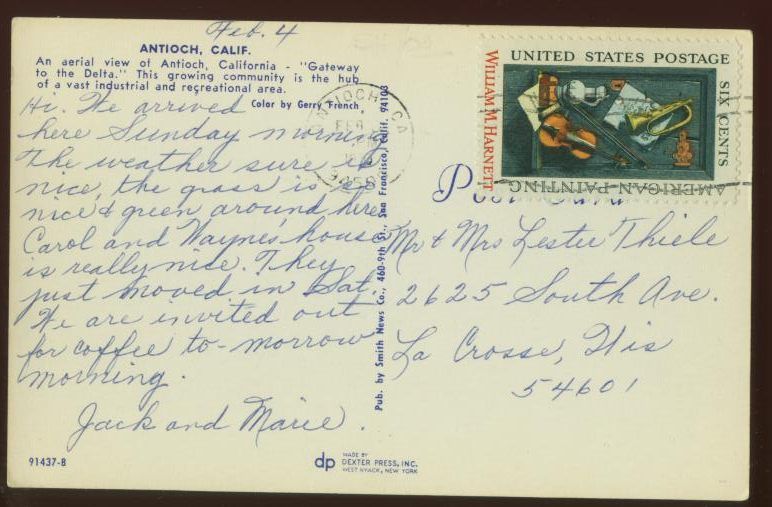 Feb. 4
ANTIOCH, CALIF.
An aerial view of Antioch, California - "Gateway
to the Delta." This growing community is the hub
of a vast industrial and recreational area.
Color by Gerry French
Hi. We arrived
here Sunday morning
The weather sure is
nice, the grass is so
nice & green around here
Carol and Wayne's house
is really nice. They
just moved in Sat.
We are invited out
for coffee to-morrow
morning.
Jack and Marie.
91437-B
Pub. by Smith News Co., 460-9th St., San Francisco, Calif. 94103
dp
MADE BY
DEXTER PRESS, INC.
WEST NYACK, NEW YORK
ANTIOCH, CA
FEB
UNITED STATES POSTAGE
SIX CENTS
AMERICAN PAINTING
WILLIAM M. HARNETT
Post Card
Mr & Mrs Lester Thiele
2625 South Ave.
La Crosse, Wis
54601